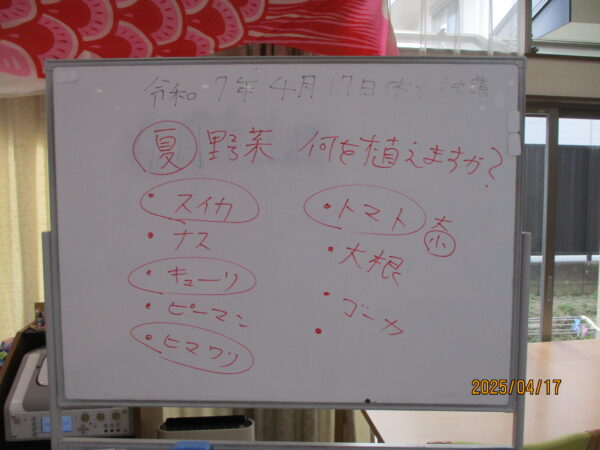 令和 7年 4月 17日 (木) 
夏 野菜 何を植えますか?
・スイカ
・ナス
・キューリ
・ピーマン
・ヒマワリ
・トマト 大 小
・大根
・ゴーヤ
・
2025/04/17